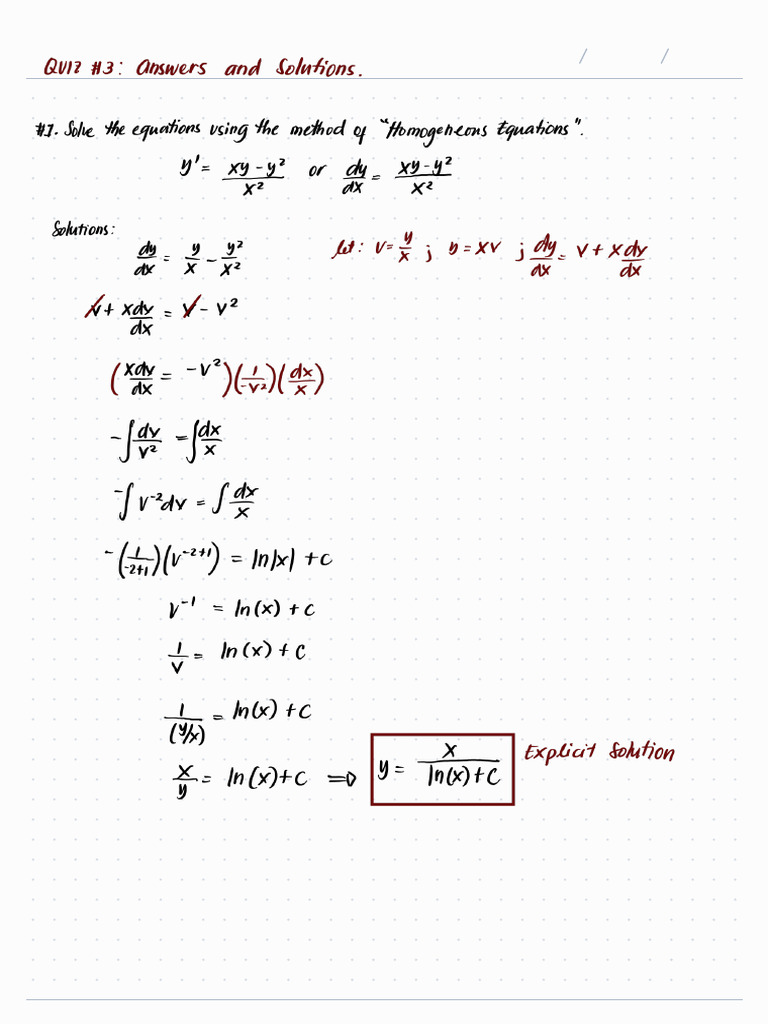 QUIZ #3: Answers and Solutions.
/ /
#1. Solve the equations using the method of "Homogeneous Equations".
y' = (xy - y²)/x² or dy/dx = (xy - y²)/x²
Solutions:
dy/dx = y/x - y²/x² let: v = y/x ; y = xv ; dy/dx = v + xdv/dx
v + xdv/dx = v - v²
(xdv/dx = -v²)(1/-v²)(dx/x)
-∫dv/v² = ∫dx/x
-∫v⁻²dv = ∫dx/x
-(1/-2+1)(v⁻²⁺¹) = ln|x| + C
v⁻¹ = ln(x) + C
1/v = ln(x) + C
1/(y/x) = ln(x) + C
x/y = ln(x) + C ⇒ y = x/(ln(x) + C) Explicit Solution